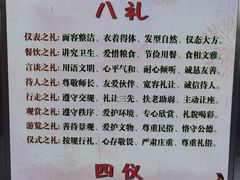 八礼
仪表之礼：面容整洁、衣着得体、发型自然、仪态大方。
餐饮之礼：讲究卫生、爱惜粮食、节俭用餐、食相文雅。
言谈之礼：用语文明、心平气和、耐心倾听、诚恳友善。
待人之礼：尊敬师长、友爱伙伴、宽容礼让、诚信待人。
行走之礼：遵守交规、礼让三先、扶老助弱、主动让座。
观赏之礼：遵守秩序、爱护环境、专心欣赏、礼貌喝彩。
游览之礼：善待景观、爱护文物、尊重民俗、恪守公德。
仪式之礼：按规行礼、心存敬畏、严肃庄重、尊重礼俗。
四仪